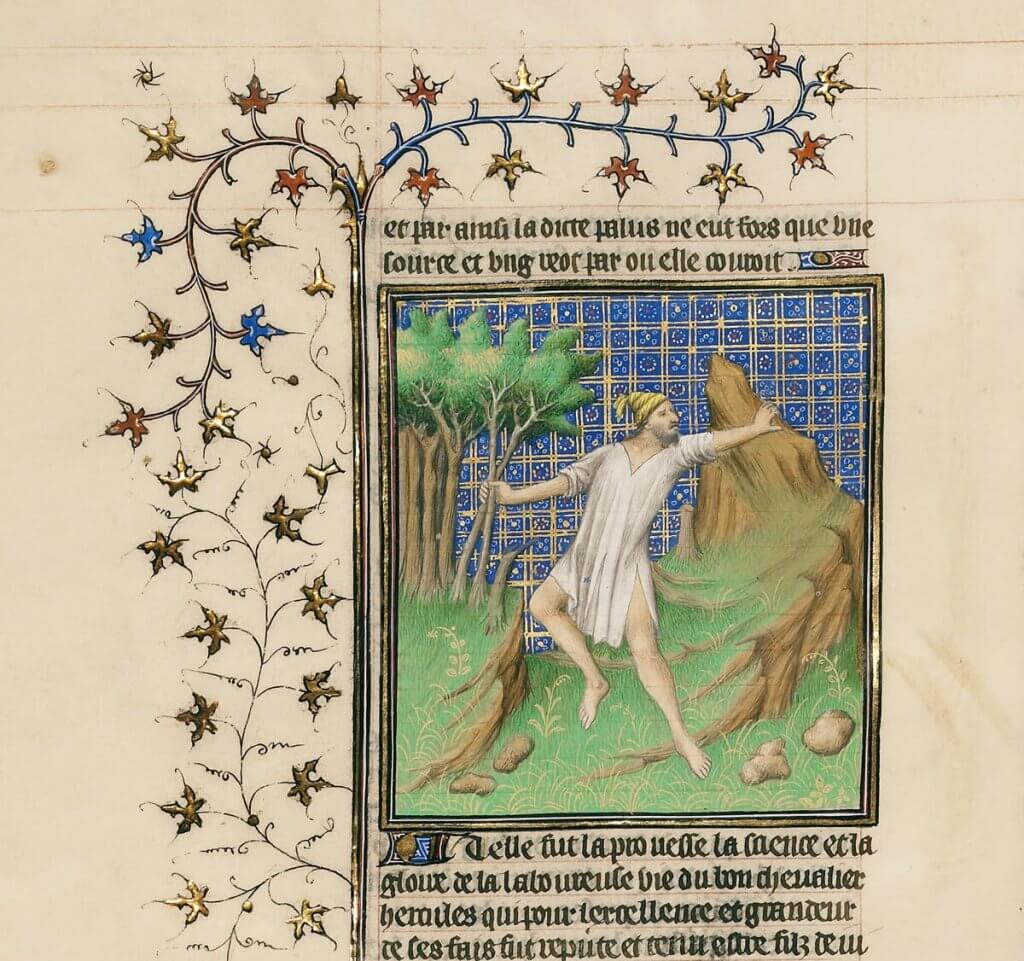 et par ainsi la dicte palus ne eut fors que vne
source et vng veot par ou elle couroit
Telle fut la prouesse la science et la
gloire de la laboureuse vie du bon cheualier
hercules qui pour lexcellence et grandeur
de ses fais fut repute et tenu estre filz de iu